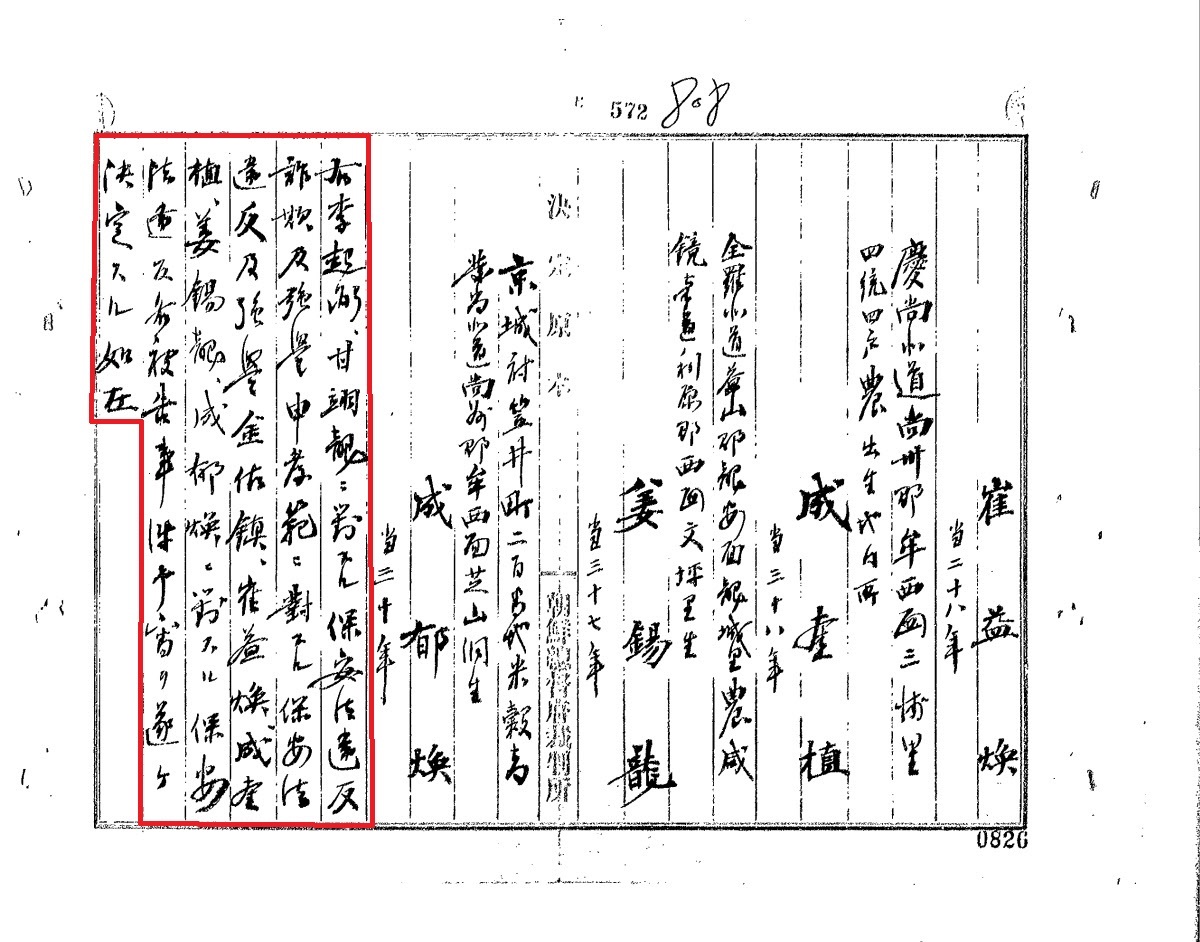 572
崔益煥
当二十八年
慶尚北道尚州郡牟西面三浦里
四統四戸農出生地右所
成奎植
当三十八年
全羅北道益山郡龍安面龍城里農咸
鏡南道利原郡西面文坪里生
姜錫龍
当三十七年
決定原本
朝鮮總督府裁判所
京城府笠井町二百番地米穀商
業尚北道尚州郡牟西面芝山洞生
成郁煥
当三十年
右李起 、甘翊龍ニ對スル保安法違反
詐欺及強盗申孝範ニ對スル保安法
違反及強盗金佐鎮、崔益煥、成奎
植、姜錫龍、成郁煥ニ對スル保安
法違反各被告事件予審ヲ遂ケ
決定スル如左
0826